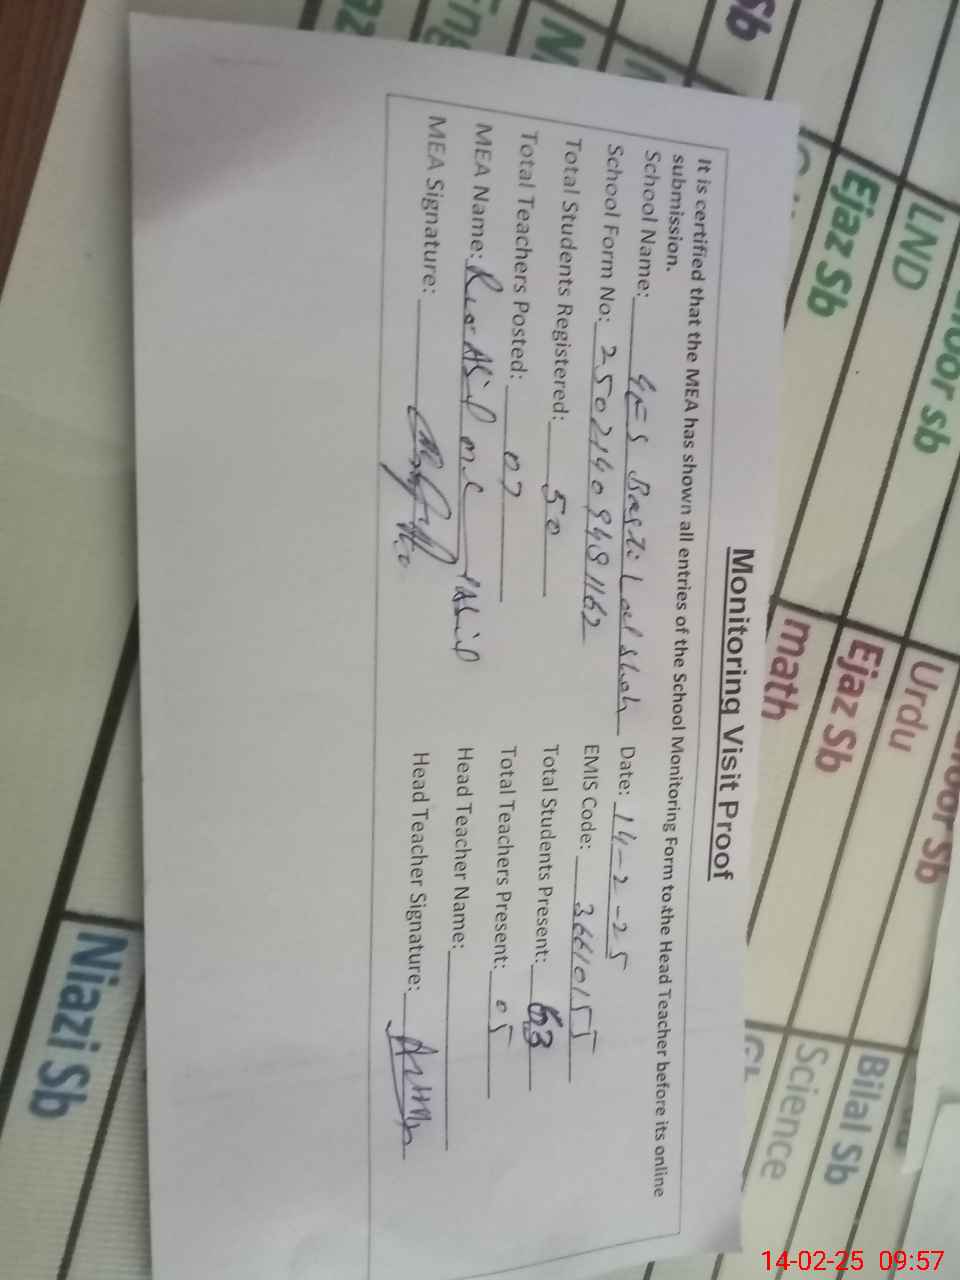 Monitoring Visit Proof
It is certified that the MEA has shown all entries of the School Monitoring Form to the Head Teacher before its online
submission.
School Name: GES Basti Lal Shah Date: 14-2-25
School Form No: EMIS Code: 36610155
Total Students Registered: 50 Total Students Present:
Total Teachers Posted: 07 Total Teachers Present: 05
MEA Name: Head Teacher Name:
MEA Signature: Head Teacher Signature:
Sb
LND
Ejaz Sb
Urdu
Ejaz Sb
math
Bilal Sb
Science
Niazi Sb
14-02-25 09:57